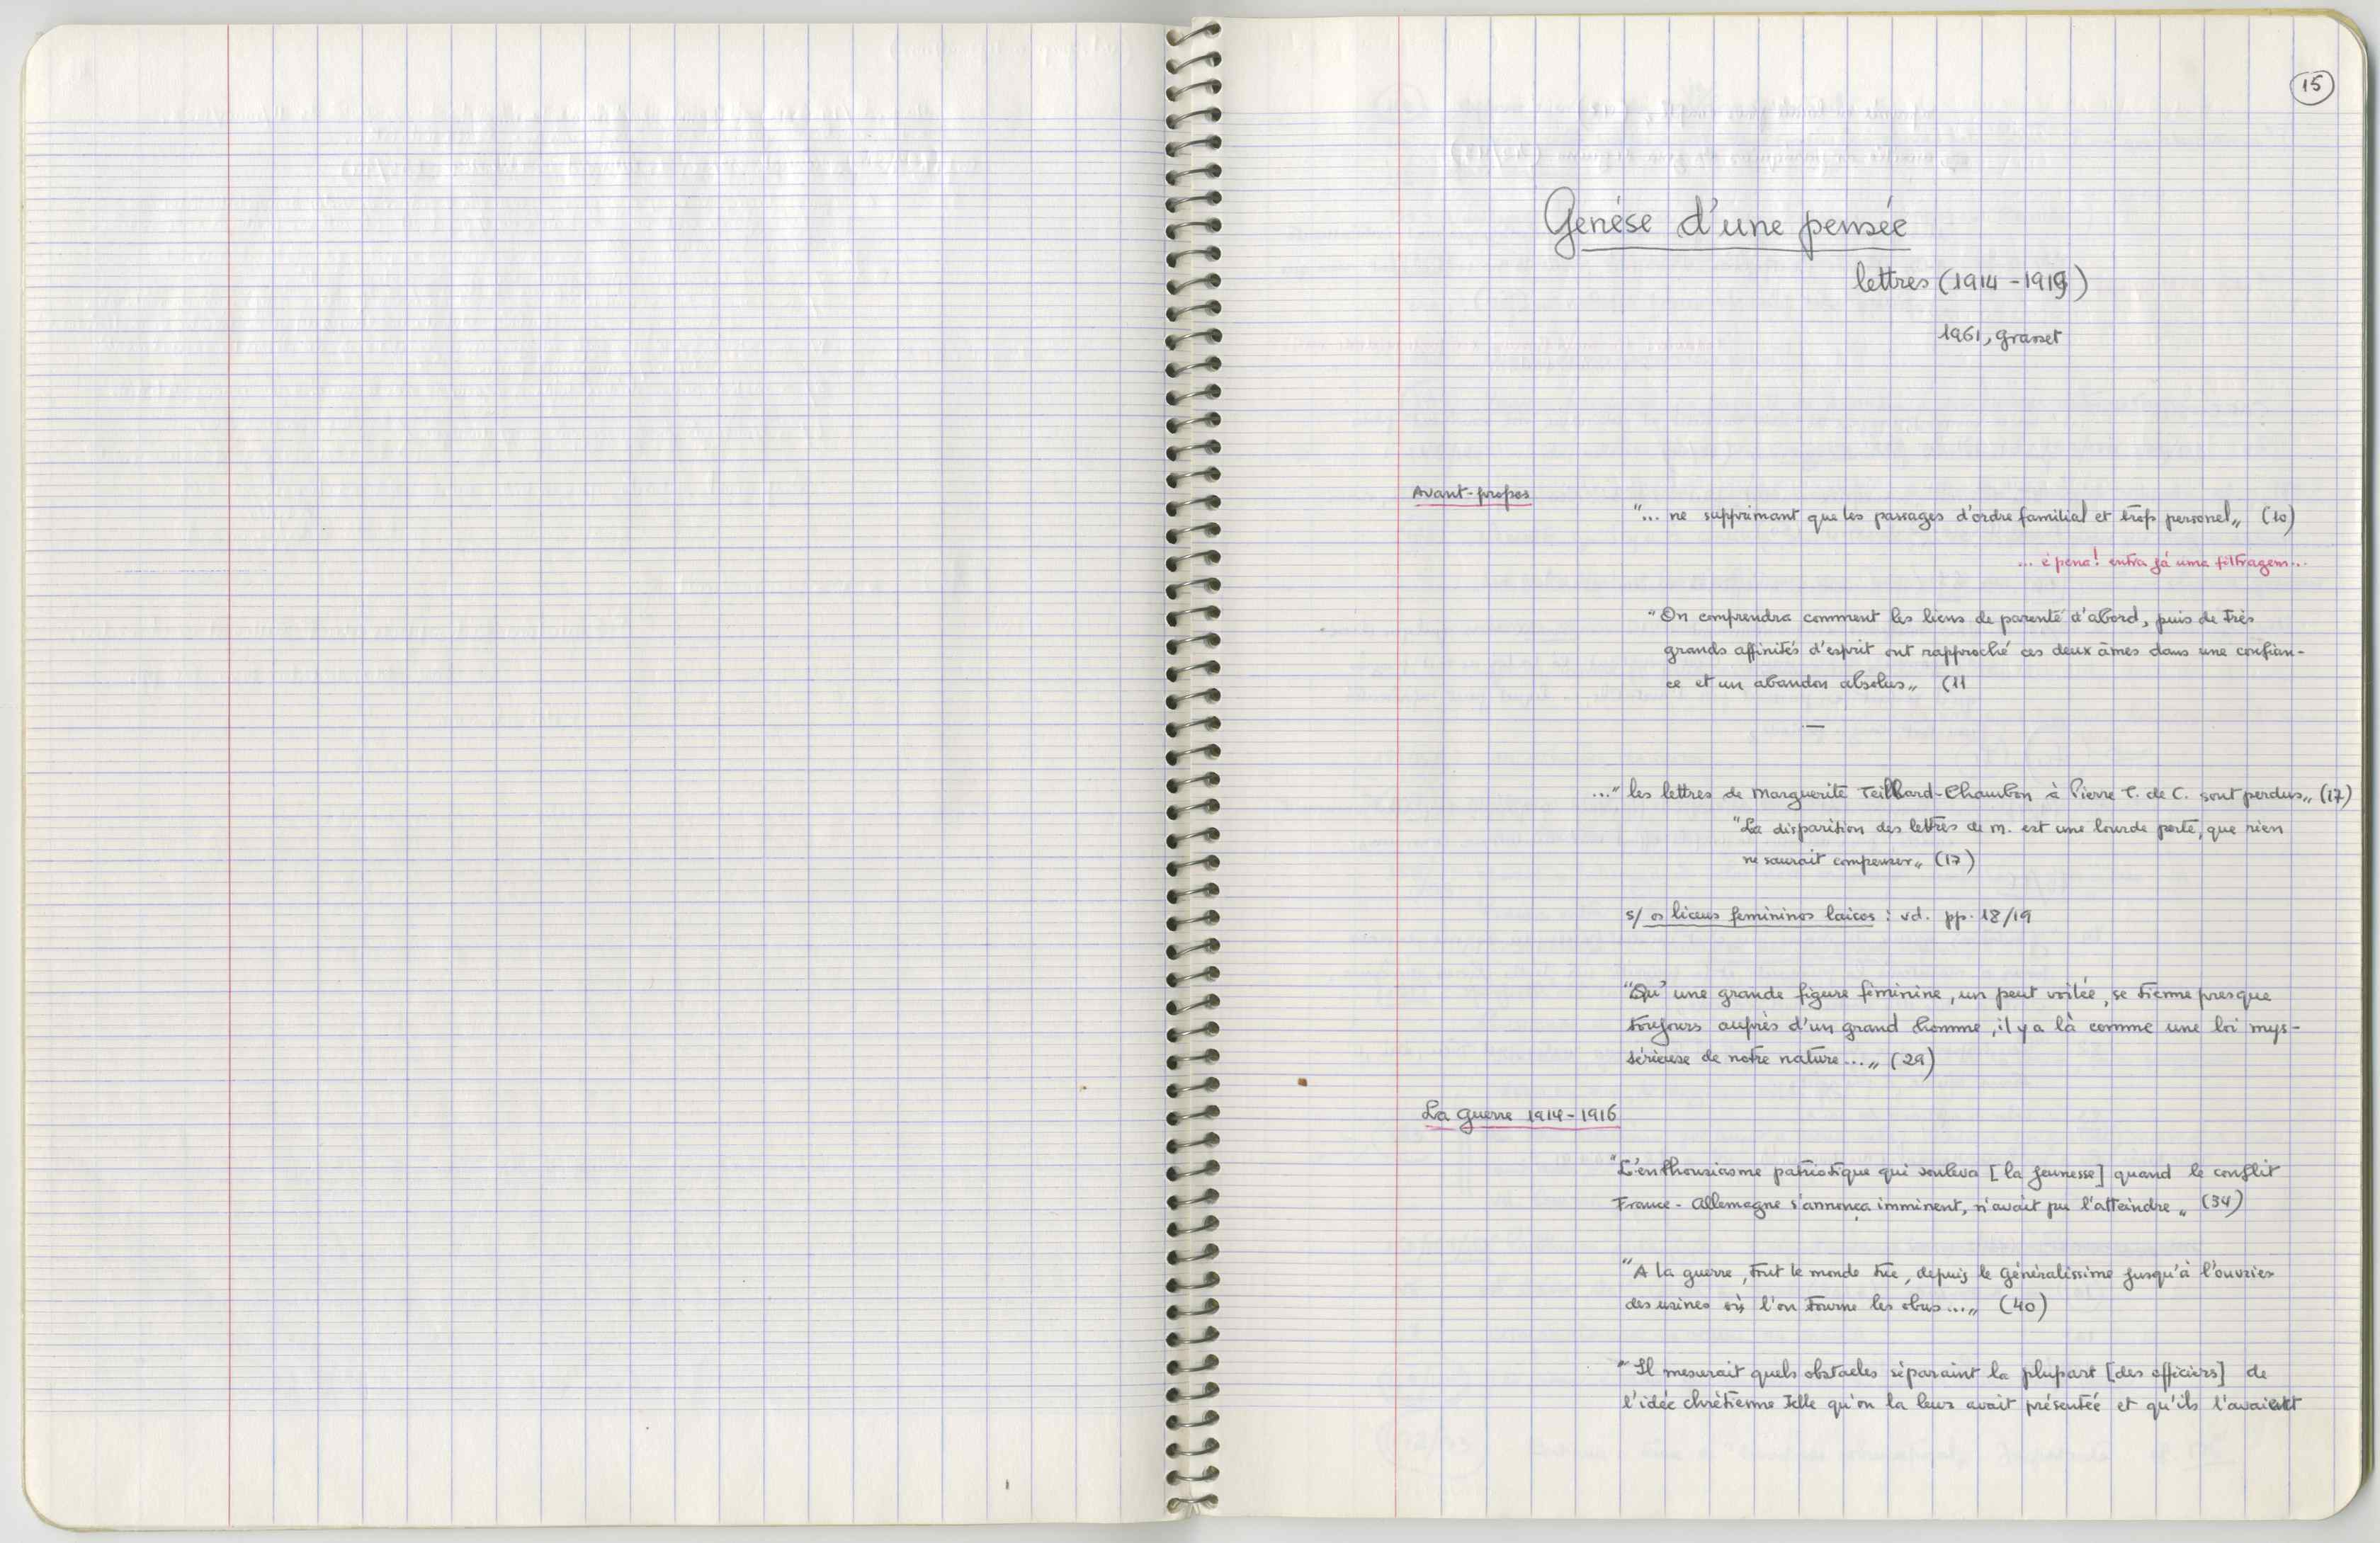 15
Genèse d'une pensée
lettres (1914-1919)
1961, Grasset
Avant-propos
"... ne supprimant que les passages d'ordre familial et trop personel„ (10)
... é pena! entra já uma filtragem...
"On comprendra comment les liens de parenté d'abord, puis de très
grands affinités d'esprit ont rapproché ces deux âmes dans une confian-
ce et un abandon absolus„ (11
—
..." les lettres de Marguerite Teilhard-Chambon à Pierre T. de C. sont perdus„ (17)
"La disparition des lettres de M. est une lourde perte, que rien
ne saurait compenser„ (17)
s/ os liceus femininos laicos : vd. pp. 18/19
"Qu'une grande figure féminine, un peut voilée, se tienne presque
toujours auprès d'un grand homme, il y a là comme une loi mys-
térieuse de notre nature...„ (29)
La guerre 1914-1916
"L'enthousiasme patriotique qui souleva [la jeunesse] quand le conflit
France-Allemagne s'annonça imminent, n'avait pu l'atteindre„ (34)
"A la guerre, tout le monde tue, depuis le Généralissime jusqu'à l'ouvrier
des usines où l'on tourne les obus...„ (40)
"Il mesurait quels obstacles séparaint la plupart [des officiers] de
l'idée chrétienne telle qu'on la leur avait présentée et qu'ils l'avaient